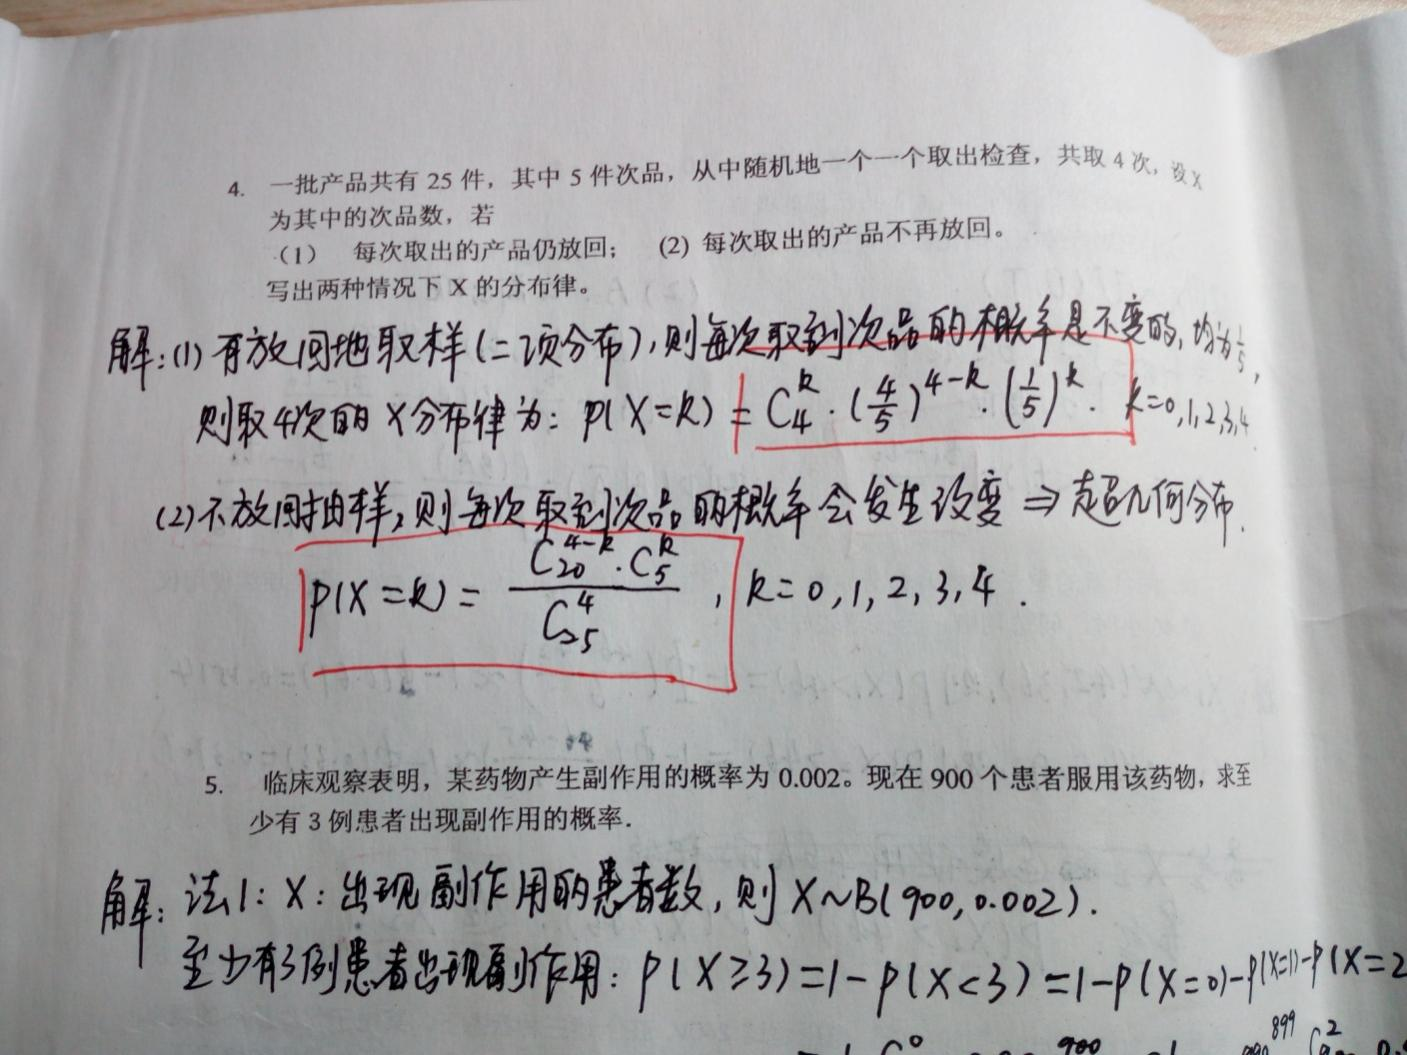 4. 一批产品共有 25 件，其中 5 件次品，从中随机地一个一个取出检查，共取 4 次，设 X
为其中的次品数，若
（1） 每次取出的产品仍放回； (2) 每次取出的产品不再放回。
写出两种情况下 X 的分布律。
解：(1) 有放回地取样(二项分布)，则每次取到次品的概率是不变的，均为1/5，
则取4次的X分布律为：P(X=k) = C₄ᵏ·(4/5)⁴⁻ᵏ·(1/5)ᵏ. k=0,1,2,3,4
(2)不放回抽样，则每次取到次品的概率会发生改变 ⇒ 超几何分布.
P(X=k) = C₂₀⁴⁻ᵏ·C₅ᵏ / C₂₅⁴ , k=0,1,2,3,4.
5. 临床观察表明，某药物产生副作用的概率为 0.002。现在 900 个患者服用该药物，求至
少有 3 例患者出现副作用的概率.
解：法1：X：出现副作用的患者数，则 X~B(900,0.002).
至少有3例患者出现副作用：P(X≥3)=1-P(X<3)=1-P(X=0)-P(X=1)-P(X=2